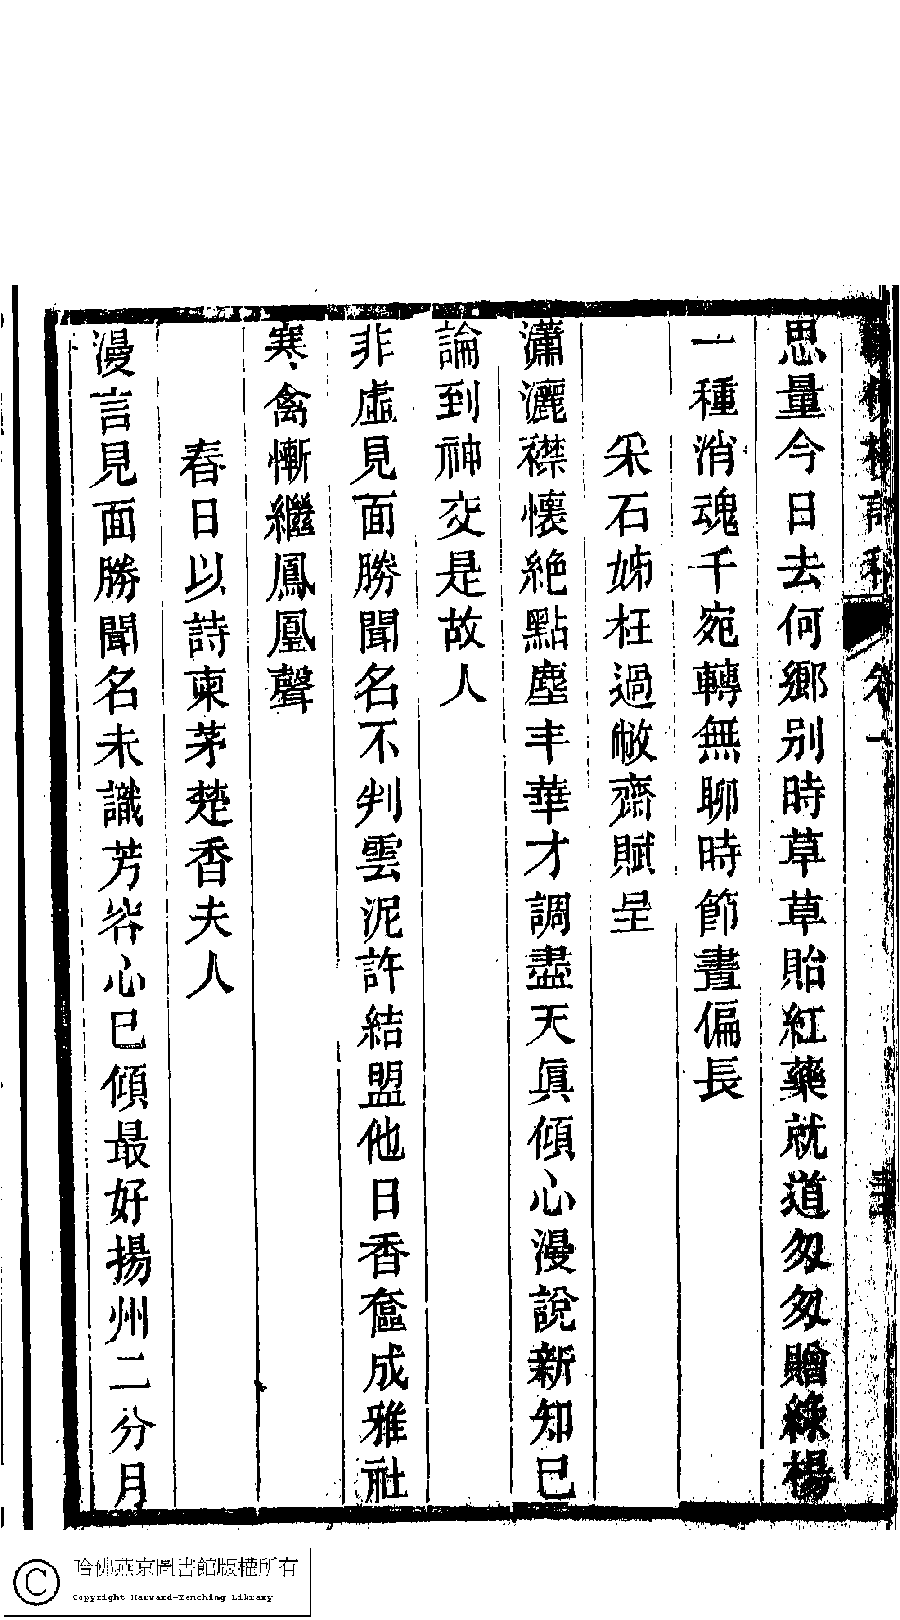 卷一
思量今日去何鄉别時草草貽紅藥就道匆匆贈綠楊
一種消魂千宛轉無聊時節晝偏長
采石姊枉過敝齋賦呈
瀟灑襟懷絶點塵丰華才調盡天眞傾心漫說新知已
論到神交是故人
非虛見面勝聞名不判雲泥許結盟他日香奩成雅社
寒禽慚繼鳳凰聲
春日以詩柬茅楚香夫人
漫言見面勝聞名未識芳容心已傾最好揚州二分月
哈佛燕京圖書館版權所有
Copyright Harvard-Yenching Library